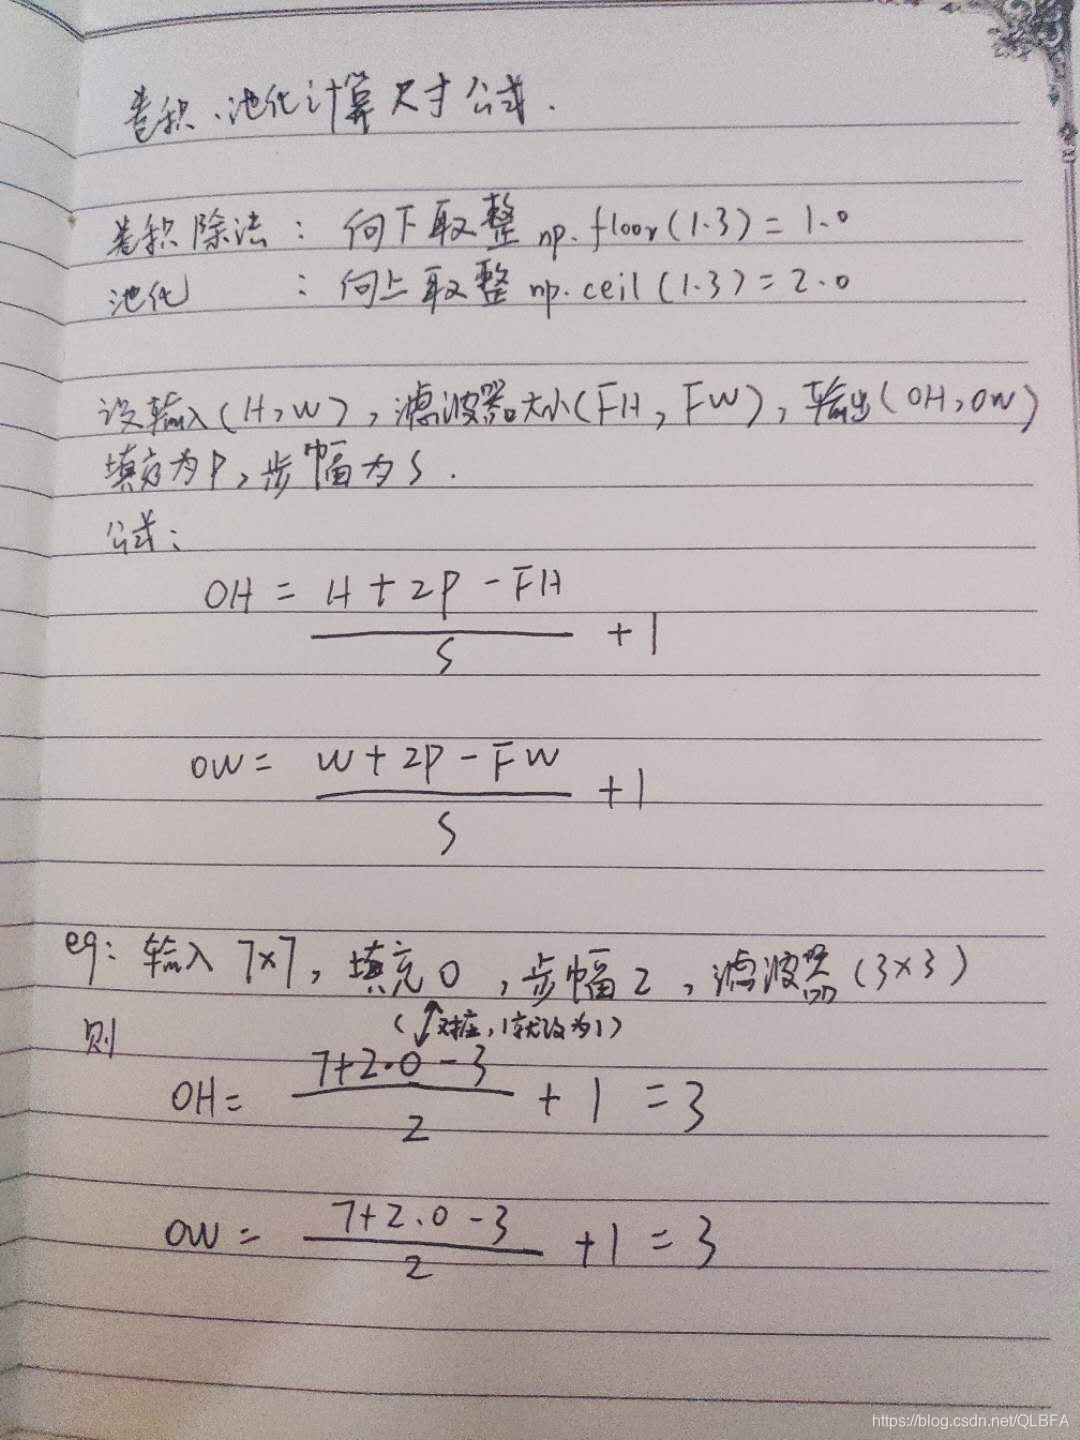 卷积、池化计算尺寸公式.
卷积除法: 向下取整 np.floor(1.3)=1.0
池化 : 向上取整 np.ceil(1.3)=2.0
设输入(H,W), 滤波器大小(FH, FW), 输出(OH,OW)
填充为P, 步幅为S.
公式:
OH = H+2P-FH
S
+1
OW = W+2P-FW
S
+1
eg: 输入7×7, 填充0, 步幅2, 滤波器(3×3)
(↕对应,1就改为1)
则
OH= 7+2·0-3
2
+1=3
OW= 7+2·0-3
2
+1=3
https://blog.csdn.net/QLBFA